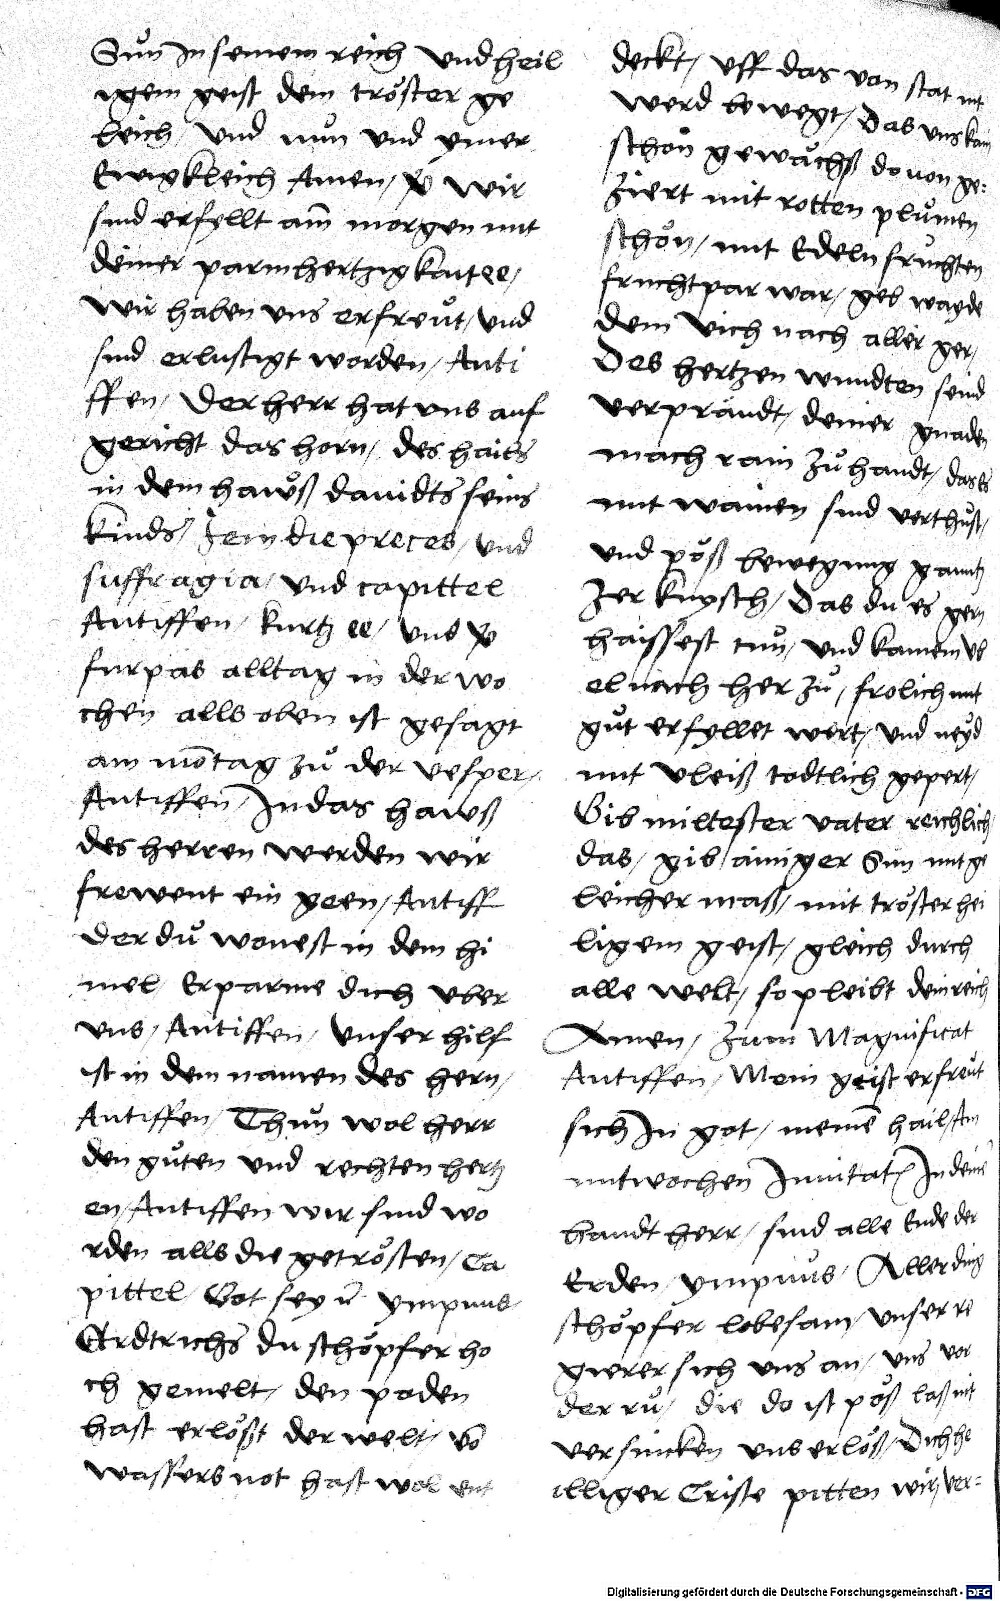 Sůn In seinem reich vnd heil
igem geist dem tröster ge
leich vnd nůn vnd ymer
Ewigkleich Amen, ꝟ wir
sind erfyllt am̄ morgen mit
deiner parmhertzigkait ee,
wir haben vns erfreůt, vnd
sind erlustigt worden, Anti
ffen, Der herr hat vns auf
gericht das horn, des hails
in dem hawß dauidts seins
kinds, Jtem die preces, vnd
suffragia, vnd capittel
Antiffen, kurtz ee, vnd ꝟ
furpas alltag in der wo
chen alls oben ist gesagt
am mōtag zů der vesper,
Antiffen, In das hawß
des herren werden wir
frewent ein geen, Antiff
Der dů wonest in dem hi
mel Erparme dich vber
vns, Antiffen, vnser hilf
ist in dem namen des hern,
Antiffen, Thůn wol herr
den gůten vnd rechten hertz
en, Antiffen wir sind wo
rden alls die getrösten, Ca
pittel, Got sey ympnus,
Erdtrichs du schöpfer ho
ch gemelt, den poden
hast erlößt der welt, vō
wassers not hast wol ent
deckt, vff das von stat nit
werd bewegt, Das vns kain
schön gewächß do von ge=
ziert mit rotten plůmen
schön, mit Edeln fruchten
fruchtpar war, geb wayde
dem vich nach aller ger,
Des hertzen wundten send
verprändt, deiner gnaden
mach rain zů handt, das Es
mit wainen sind verthůst,
vnd pöß bewegung gantz
zerknyscht, Das du es gern
haissest tůn, vnd kainem vb
el nach her zů, frolich mit
gůt erfyllet wert, vnd neyd
mit vleiß todtlich gepert,
Gib miltester vater reichlich
das, gib ainiger Sun mit ge
leicher mass, mit tröster hei
ligem geist, gleich durch
alle welt, so pleibt dein reich
Amen, Zum Magnificat
Antiffen, Mein geist erfreůt
sich In got, meinē hail, Am
mitwochen Inuitat In deine
handt herr, sind alle Ende der
Erden, ympnůs, Aller ding
schöpfer lobesam, vnser re
gierer sich vns an, vns vor
der rů, die do ist pöß laß nit
versincken vns erlöß, Dich he
illiger Criste pitten wir, ver=
Digitalisierung gefördert durch die Deutsche Forschungsgemeinschaft - DFG